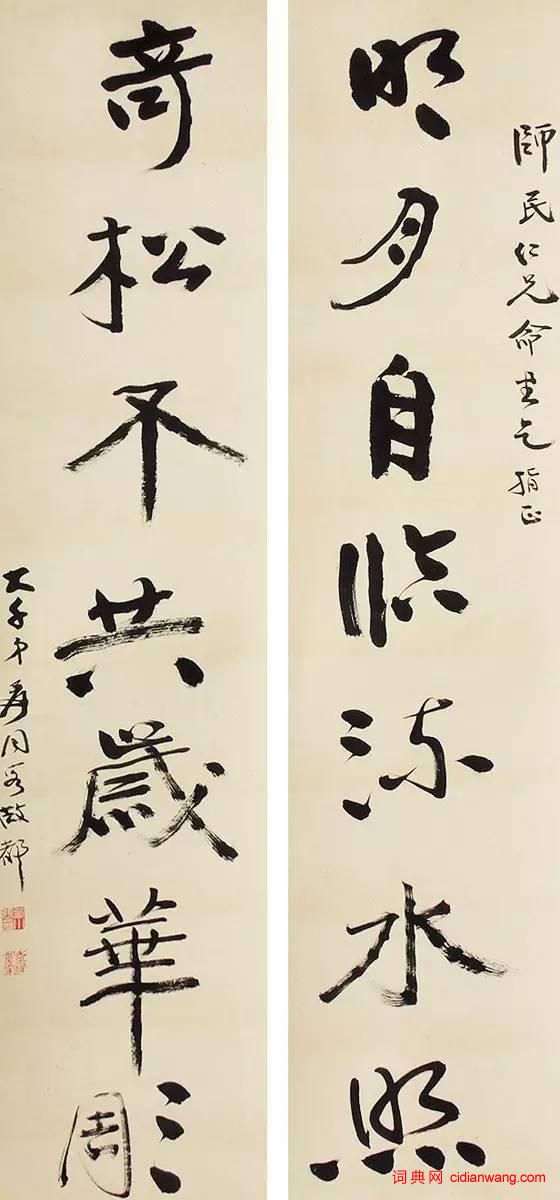 師民仁兄命書乞指正
明月自臨流水照
奇松不共歲華彫
大千弟爰同客故都
词典网 cidianwang.com